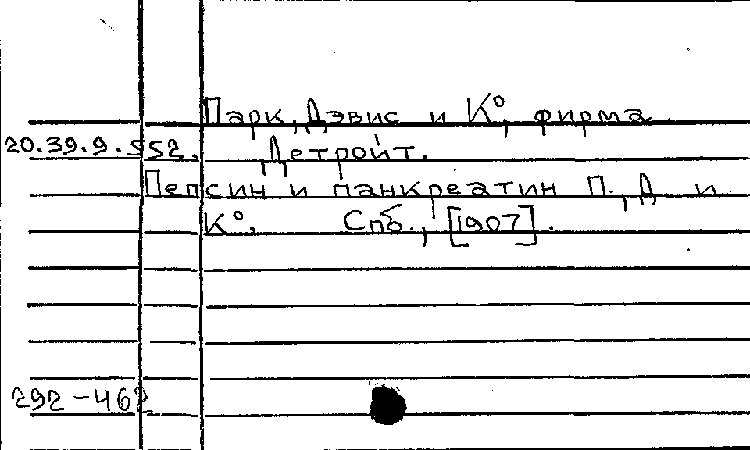 Парк, Дэвис и К°, фирма
20.39.9.552. Детройт.
Пепсин и панкреатин П., Д. и
К°. Спб., [1907].
292-462